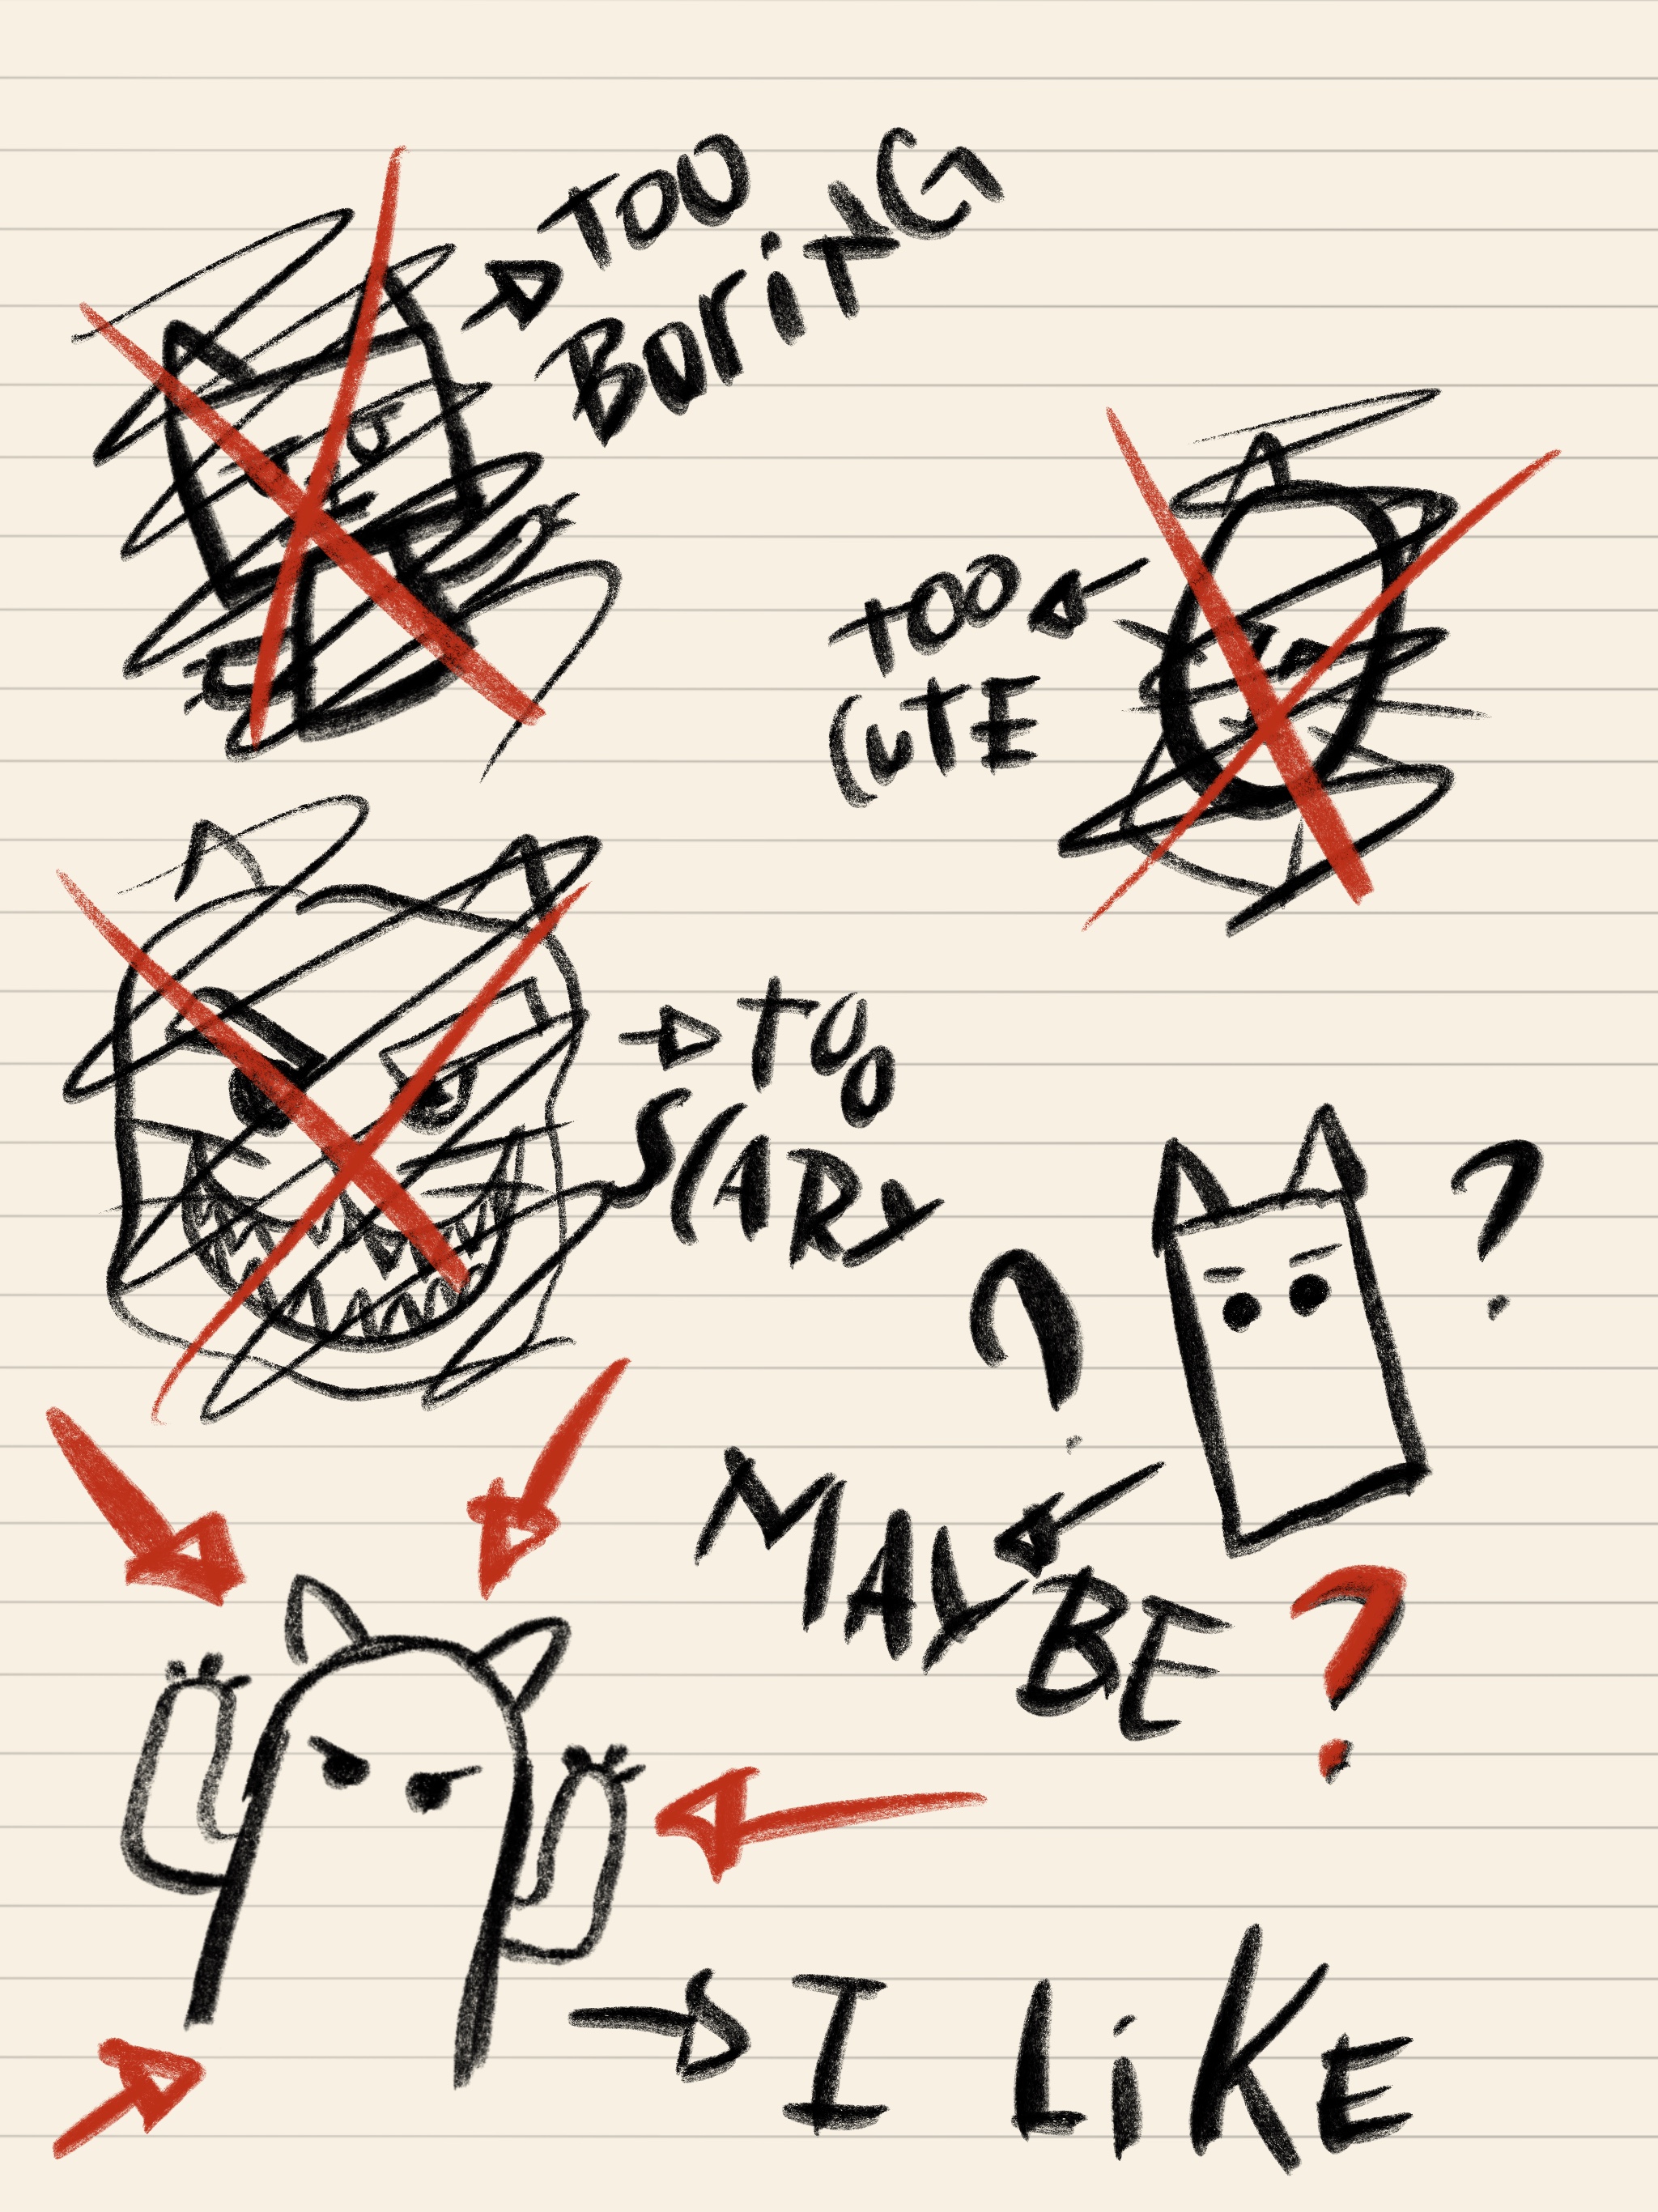 TOO
BoriNG
TOO
CUTE
TOO
SCARY
?
?
MAYBE
?
I LiKE